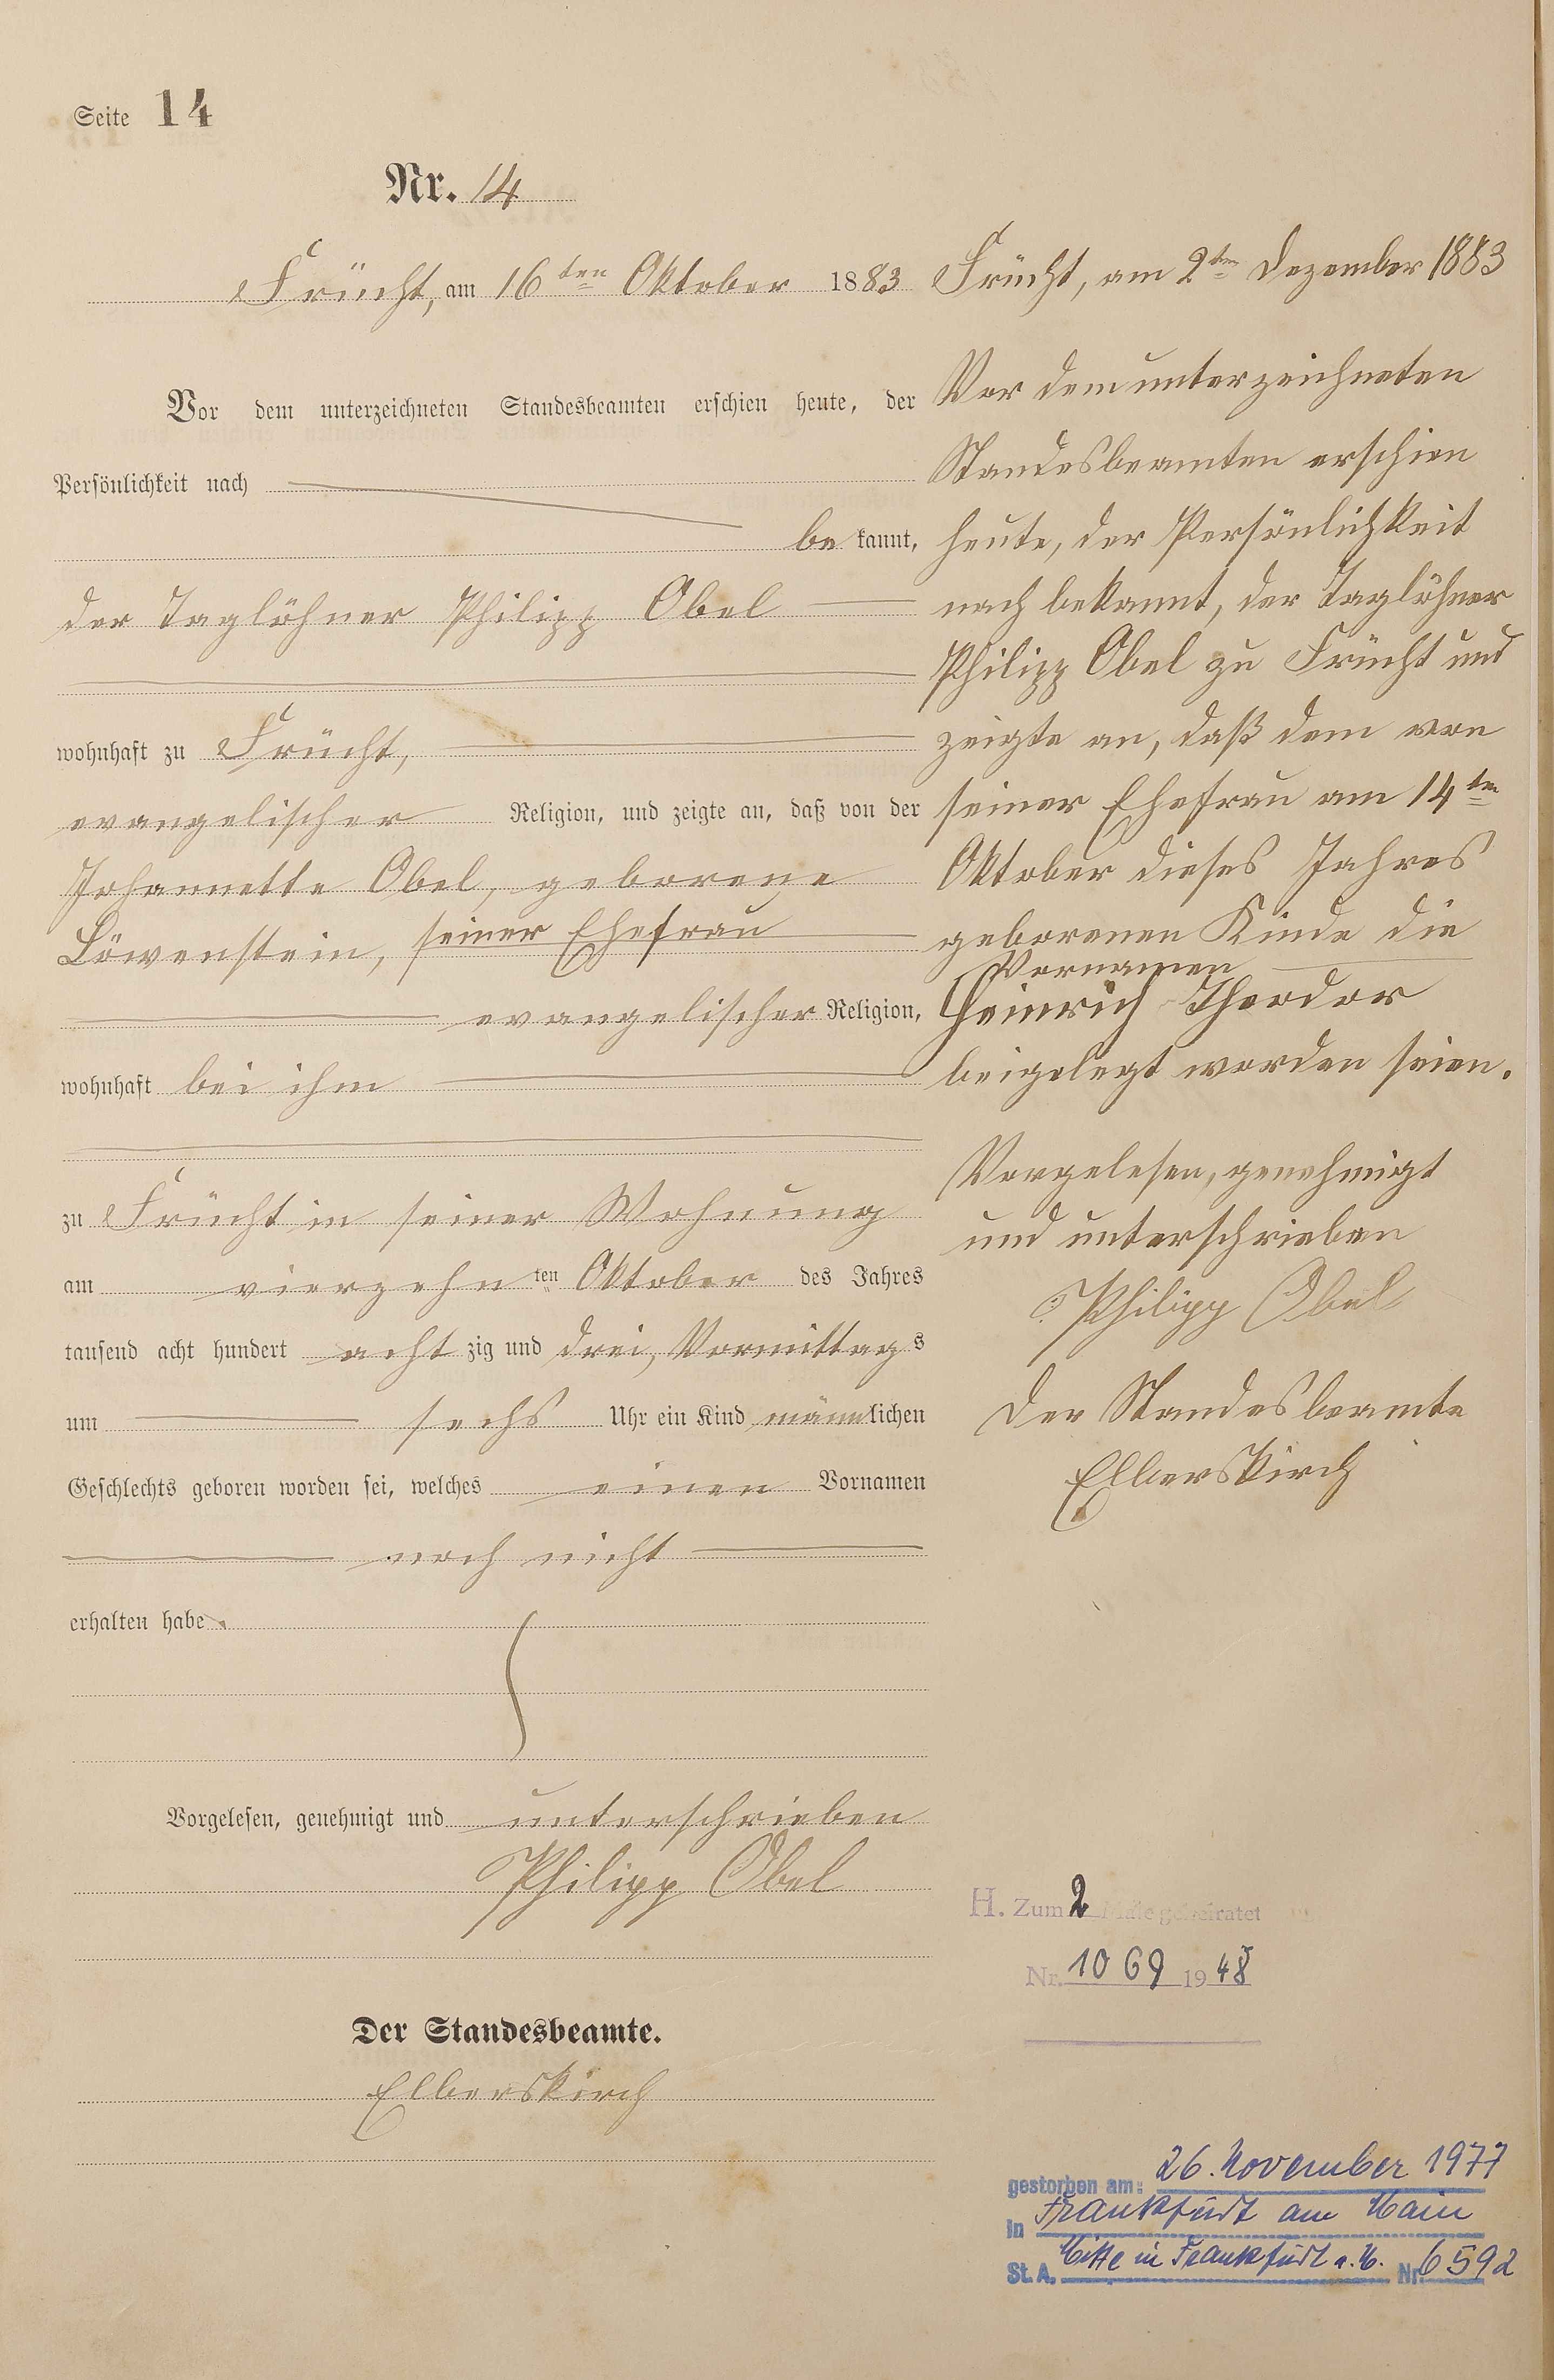 Seite 14
Nr. 14
Frücht, am 16ten Oktober 1883
Vor dem unterzeichneten Standesbeamten erschien heute, der
Persönlichkeit nach
bekannt,
der Taglöhner Philipp Obel
wohnhaft zu Frücht,
evangelischer Religion, und zeigte an, daß von der
Johannette Obel, geborene
Löwenstein, seiner Ehefrau
evangelischer Religion,
wohnhaft bei ihm
zu Frücht in seiner Wohnung
am vierzehnten Oktober des Jahres
tausend acht hundert achtzig und drei, Vormittags
um sechs Uhr ein Kind männlichen
Geschlechts geboren worden sei, welches einen Vornamen
noch nicht
erhalten habe.
Vorgelesen, genehmigt und unterschrieben
Philipp Obel
Der Standesbeamte.
Elberskirch
Frücht, am 2ten Dezember 1883
Vor dem unterzeichneten
Standesbeamten erschien
heute, der Persönlichkeit
nach bekannt, der Taglöhner
Philipp Obel zu Frücht und
zeigte an, daß dem von
seiner Ehefrau am 14ten
Oktober dieses Jahres
geborenen Kinde die
Vornamen
Heinrich Theodor
beigelegt worden seien.
Vorgelesen, genehmigt
und unterschrieben
Philipp Obel
Der Standesbeamte
Elberskirch
H. Zum 2 Male geheiratet
Nr. 1069 1948
gestorben am: 26. November 1977
in Frankfurt am Main
St. A. Mitte in Frankfurt a. M. Nr. 6592